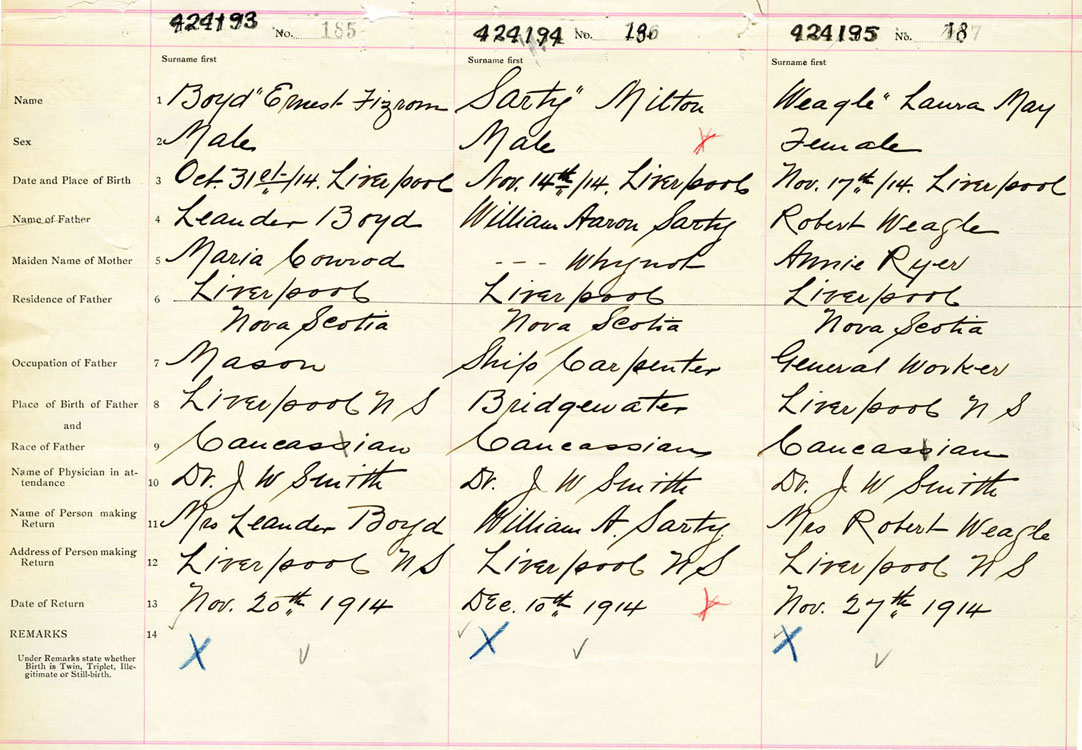 424193 No. 185 424194 No. 186 424195 No. 187
Surname first Surname first Surname first
Name 1 Boyd" Ernest Fizrom Sarty" Milton Weagle" Laura May
Sex 2 Male Male Female
Date and Place of Birth 3 Oct. 31st/14. Liverpool Nov. 14th/14. Liverpool Nov. 17th/14. Liverpool
Name of Father 4 Leander Boyd William Aaron Sarty Robert Weagle
Maiden Name of Mother 5 Maria Conrod - - - Whynot Annie Ryer
Residence of Father 6 Liverpool Liverpool Liverpool
Nova Scotia Nova Scotia Nova Scotia
Occupation of Father 7 Mason Ship Carpenter General Worker
Place of Birth of Father 8 Liverpool N S Bridgewater Liverpool N S
and
Race of Father 9 Caucassian Caucassian Caucassian
Name of Physician in at-
tendance 10 Dr. J W Smith Dr. J W Smith Dr. J W Smith
Name of Person making
Return 11 Mrs Leander Boyd William A. Sarty Mrs Robert Weagle
Address of Person making
Return 12 Liverpool N S Liverpool N S Liverpool N S
Date of Return 13 Nov. 20th 1914 Dec. 10th 1914 Nov. 27th 1914
REMARKS 14
Under Remarks state whether
Birth is Twin, Triplet, Ille-
gitimate or Still-birth.